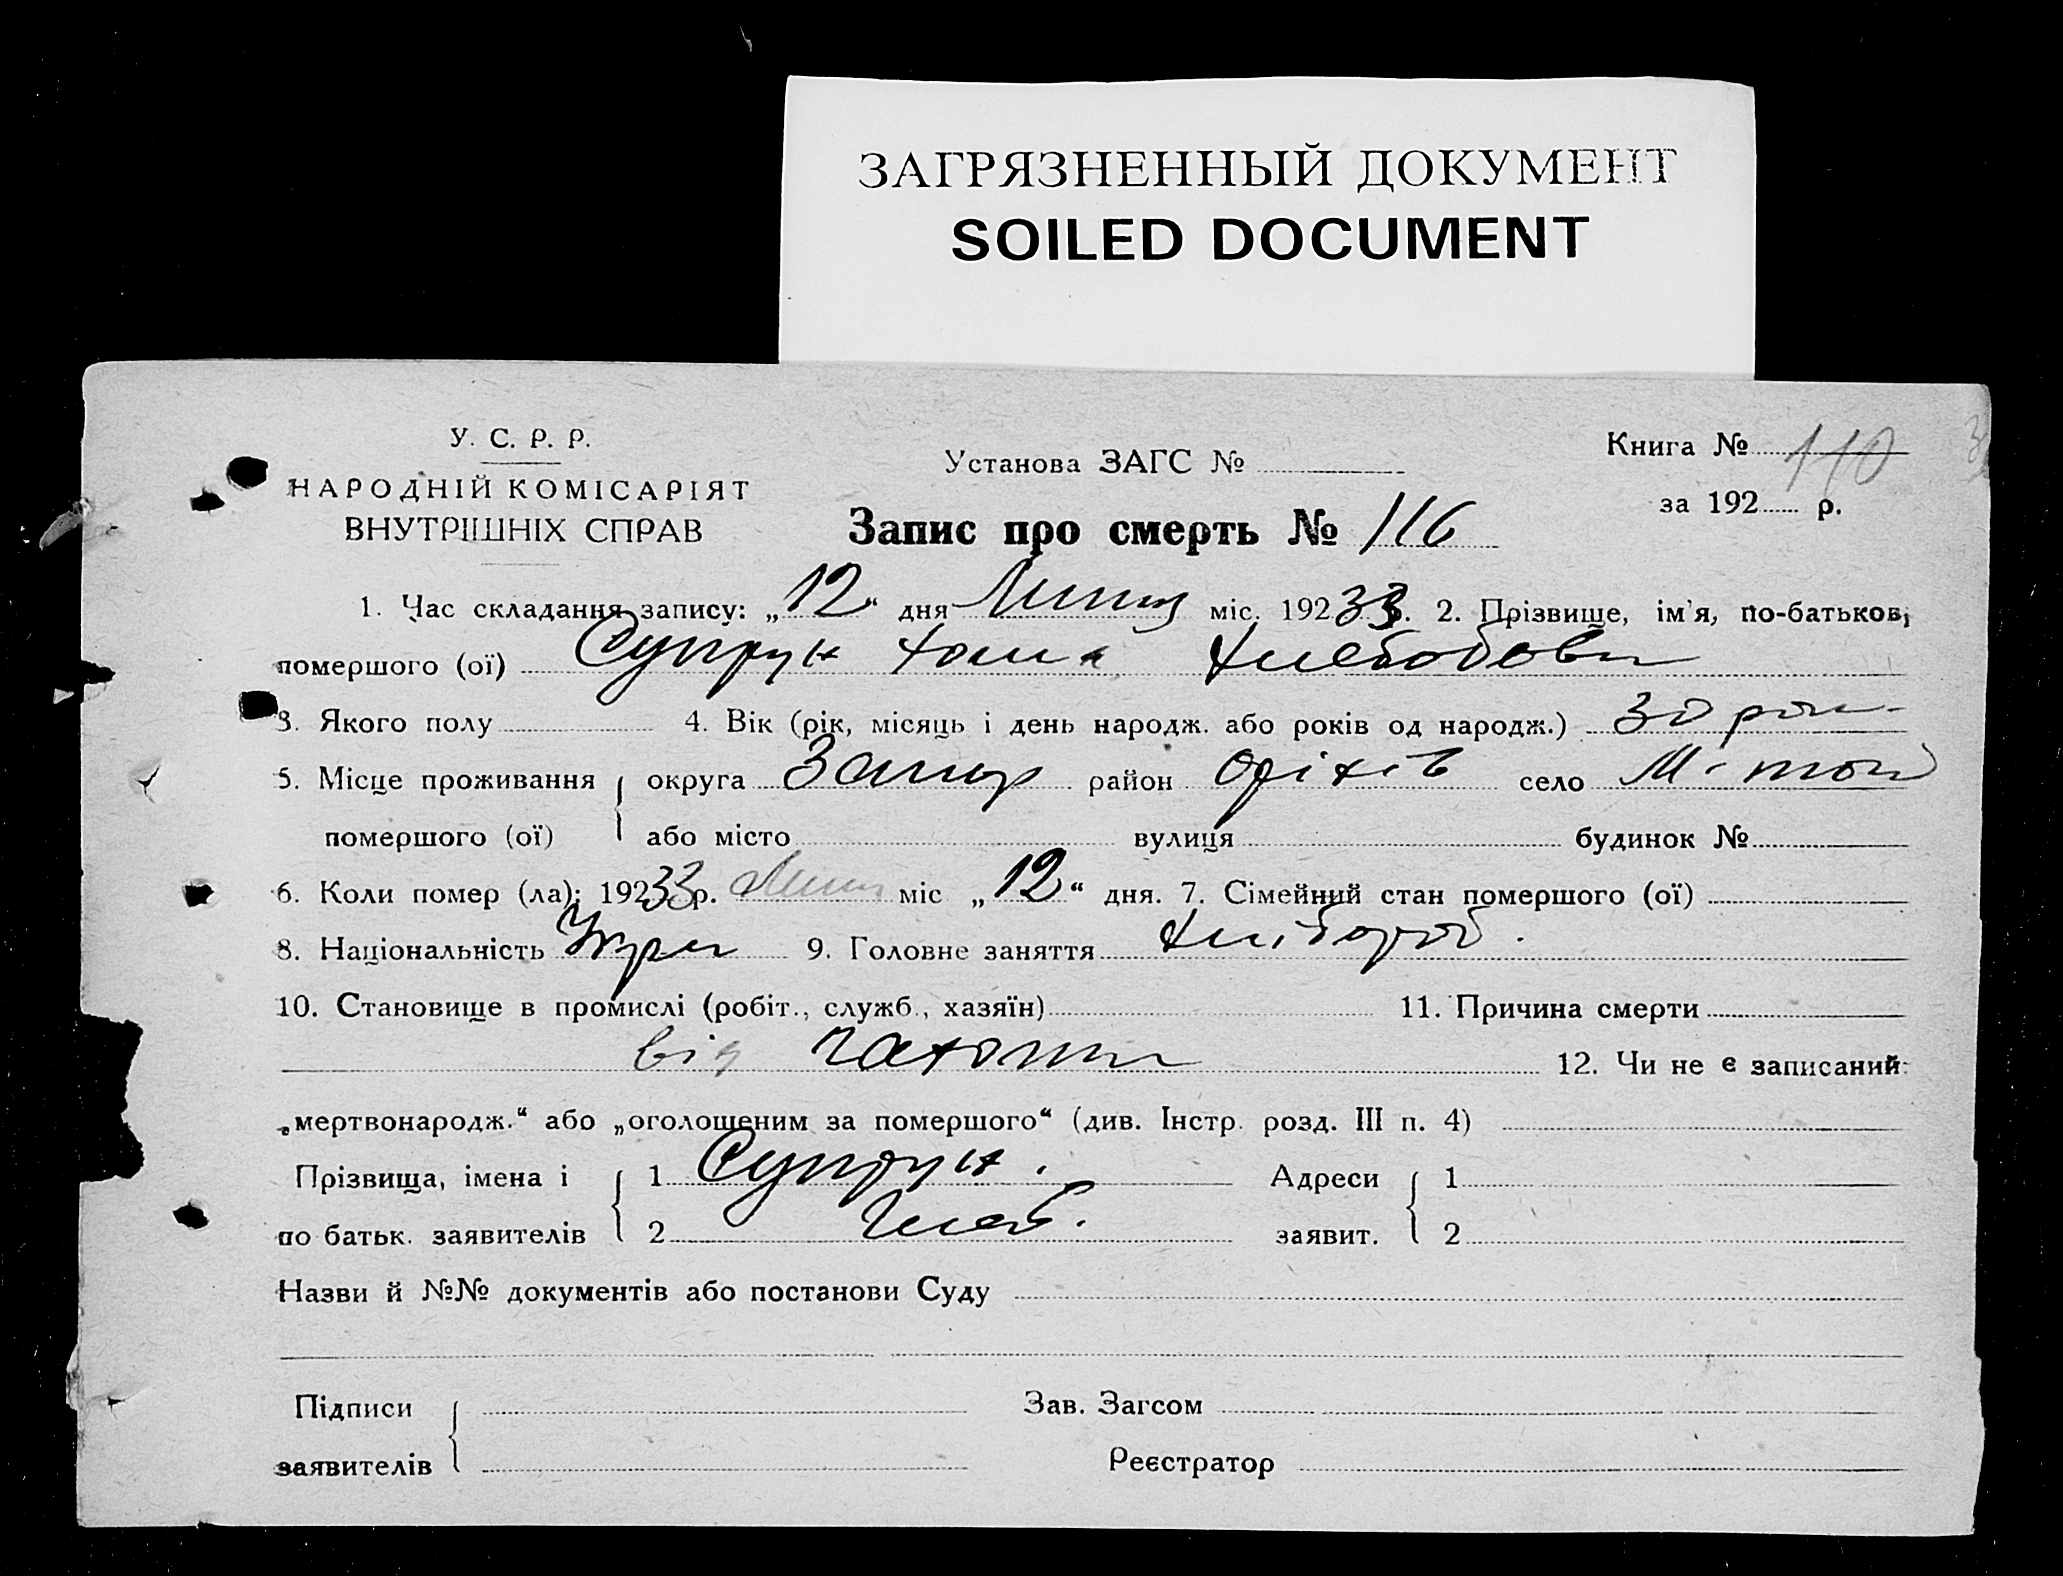 ЗАГРЯЗНЕННЫЙ ДОКУМЕНТ
SOILED DOCUMENT
У. С. Р. Р.
НАРОДНІЙ КОМІСАРІЯТ
ВНУТРІШНІХ СПРАВ
Установа ЗАГС №
Книга № 110
за 192 р.
Запис про смерть № 116
1. Час складання запису: „12“ дня Липця міс. 19233 р. 2. Прізвище, ім'я, по-батьков,
помершого (ої) Супрун Хома
3. Якого полу 4. Вік (рік, місяць і день народж. або років од народж.) 30 рок.
5. Місце проживання округа Запор район Оріхів село
помершого (ої) або місто вулиця будинок №
6. Коли помер (ла): 19233 р. Липця міс „12“ дня. 7. Сімейний стан помершого (ої)
8. Національність Укра 9. Головне заняття Хлібороб.
10. Становище в промислі (робіт., служб., хазяїн) 11. Причина смерти
від 12. Чи не є записаний:
„мертвонародж.“ або „оголошеним за помершого“ (див. Інстр. розд. III п. 4)
Прізвища, імена і 1 Супрун. Адреси 1
по батьк. заявителів 2 заявит. 2
Назви й №№ документів або постанови Суду
Підписи Зав. Загсом
заявителів Реєстратор